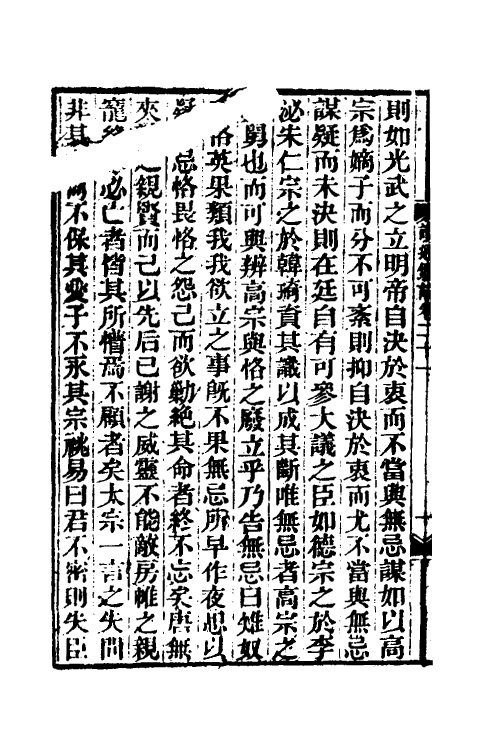 則如光武之立明帝自決於衷而不當與無忌謀如以高
宗爲嫡子而分不可紊則抑自決於衷而尤不當與無忌
謀疑而未決則在廷自有可參大議之臣如德宗之於李
泌朱仁宗之於韓琦資其識以成其斷唯無忌者高宗之
舅也而可與辨高宗與恪之廢立乎乃告無忌曰雉奴
恪英果類我我欲立之事旣不果無忌所早作夜思以
忌恪畏恪之怨己而欲勦絕其命者終不忘矣唐無
夾之親賢而己以先后已謝之威靈不能敵房帷之親
寵必亡者皆其所懵焉不顧者矣太宗一言之失問
非其不保其愛子不永其宗祧易曰君不密則失臣
讀通鑑論卷二十